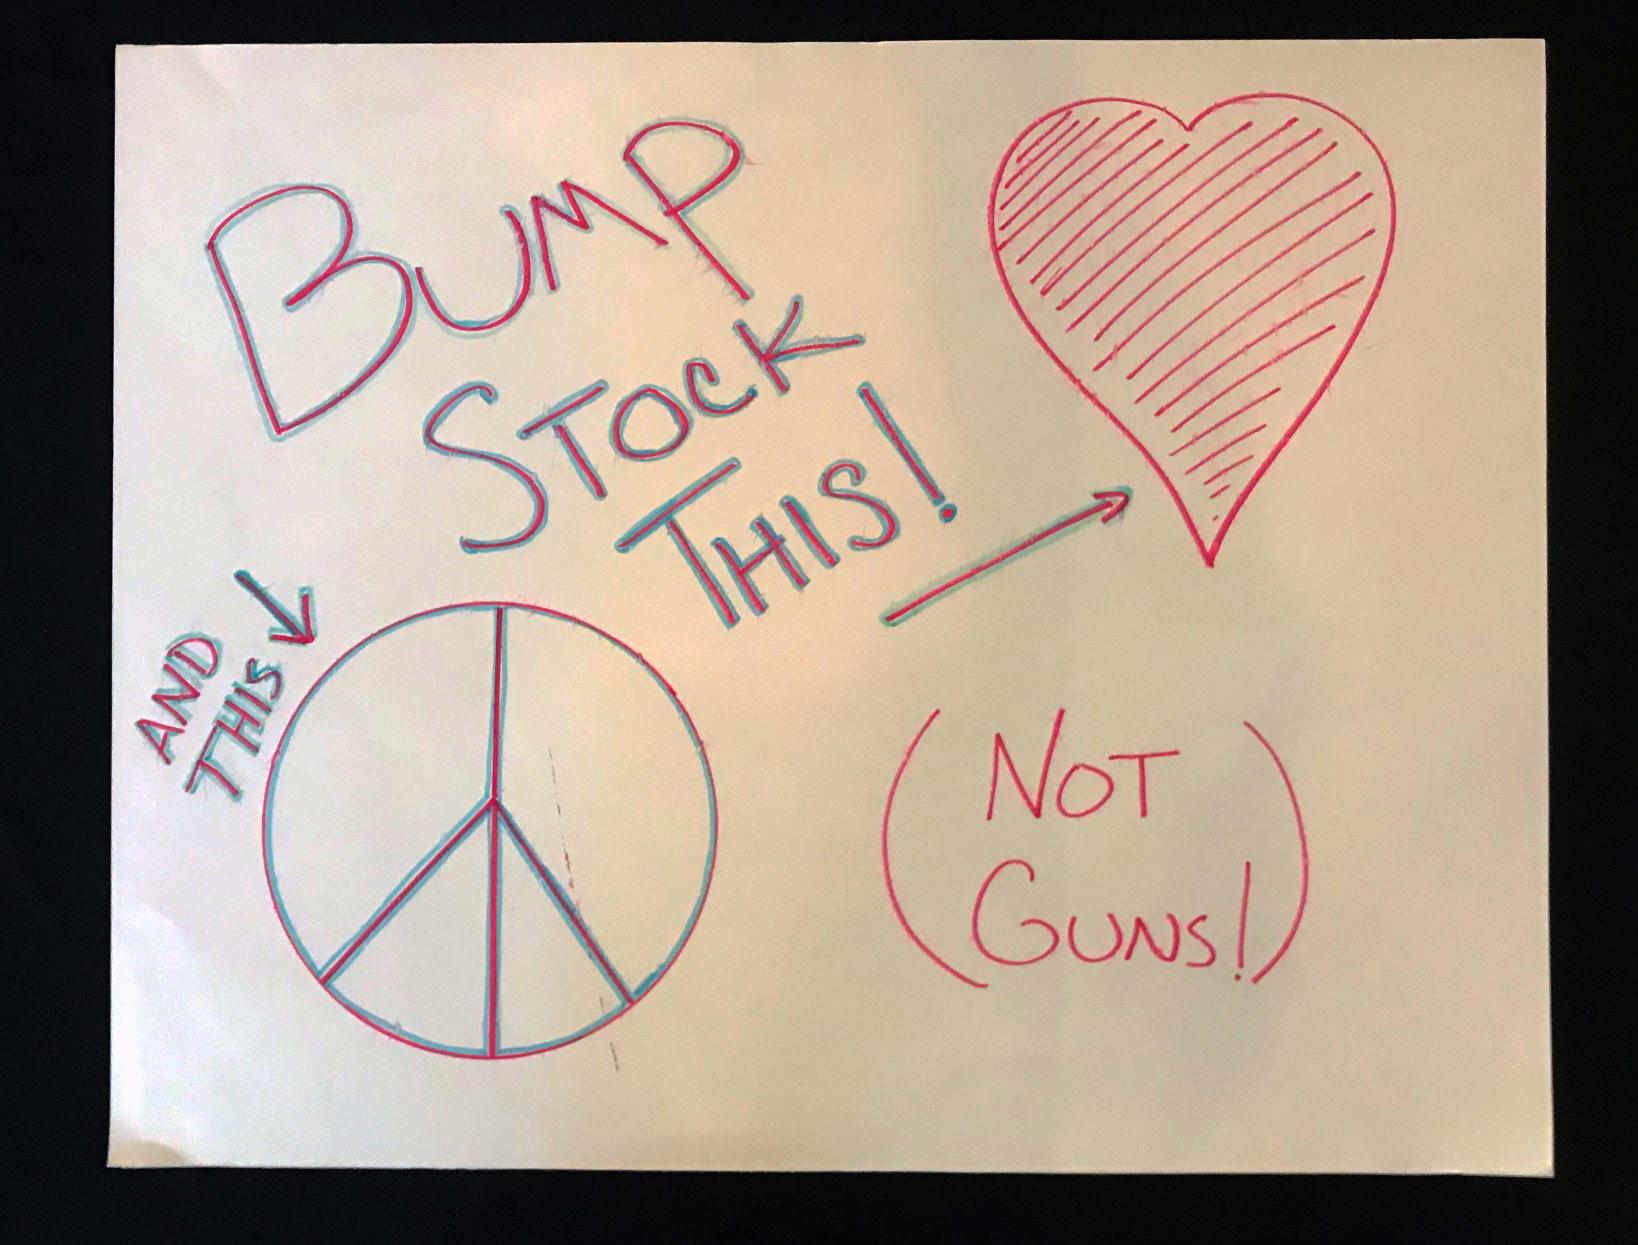 BUMP
STOCK
THIS!
AND
THIS
(NOT
GUNS!)